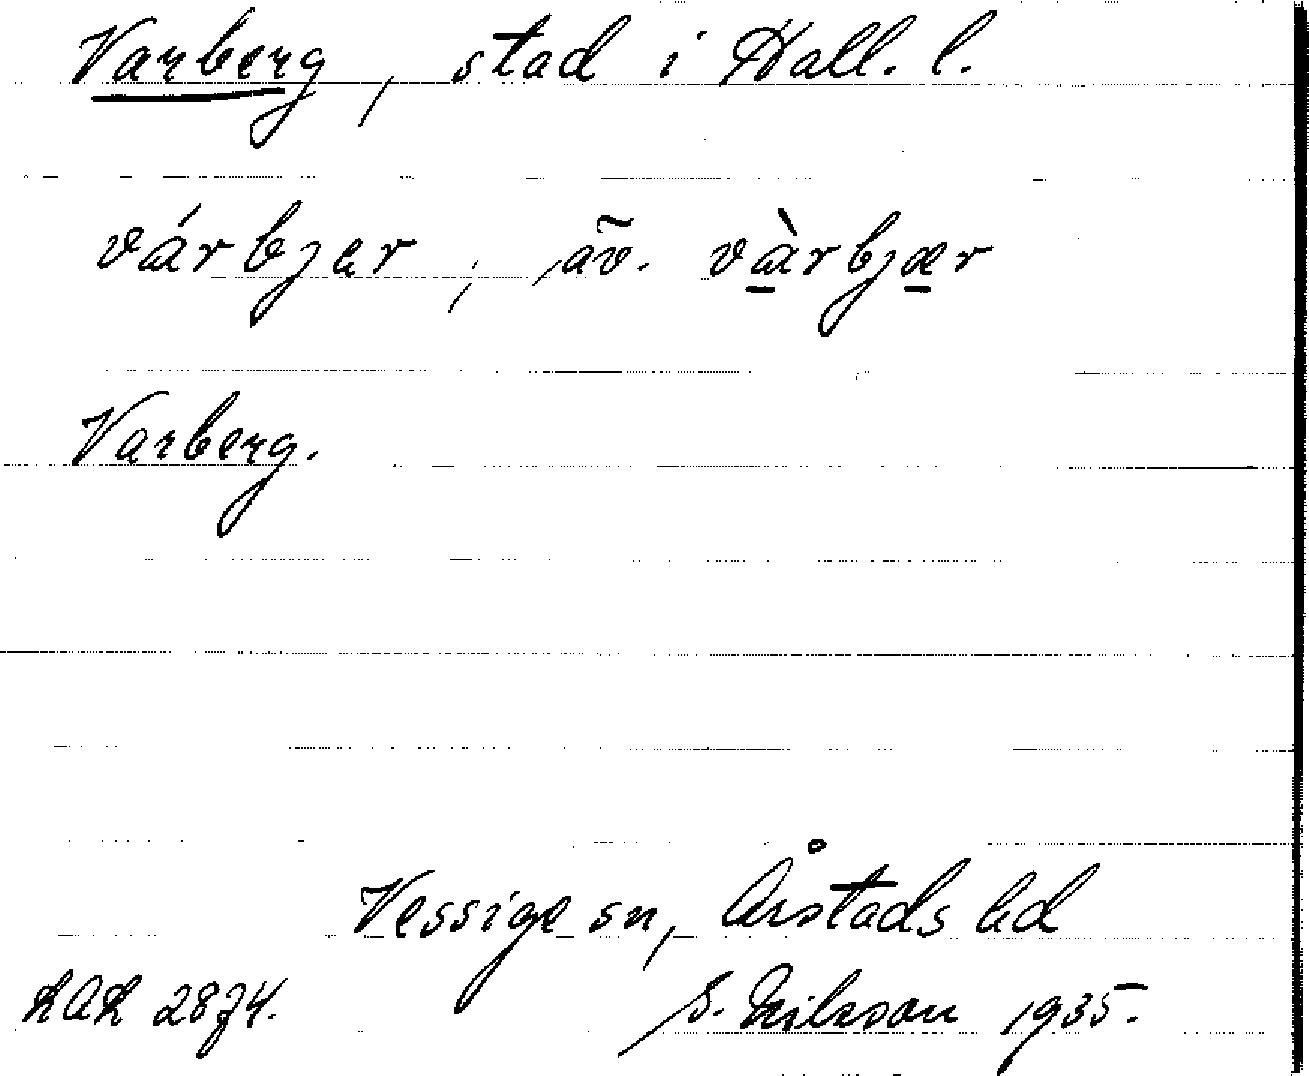 Varberg, stad i Hall. l.
várbjer, äv. và̱rbjæ̱r
Varberg.
Vessige sn, Årstads hd
LAL 2874. S. Nilsson 1935.